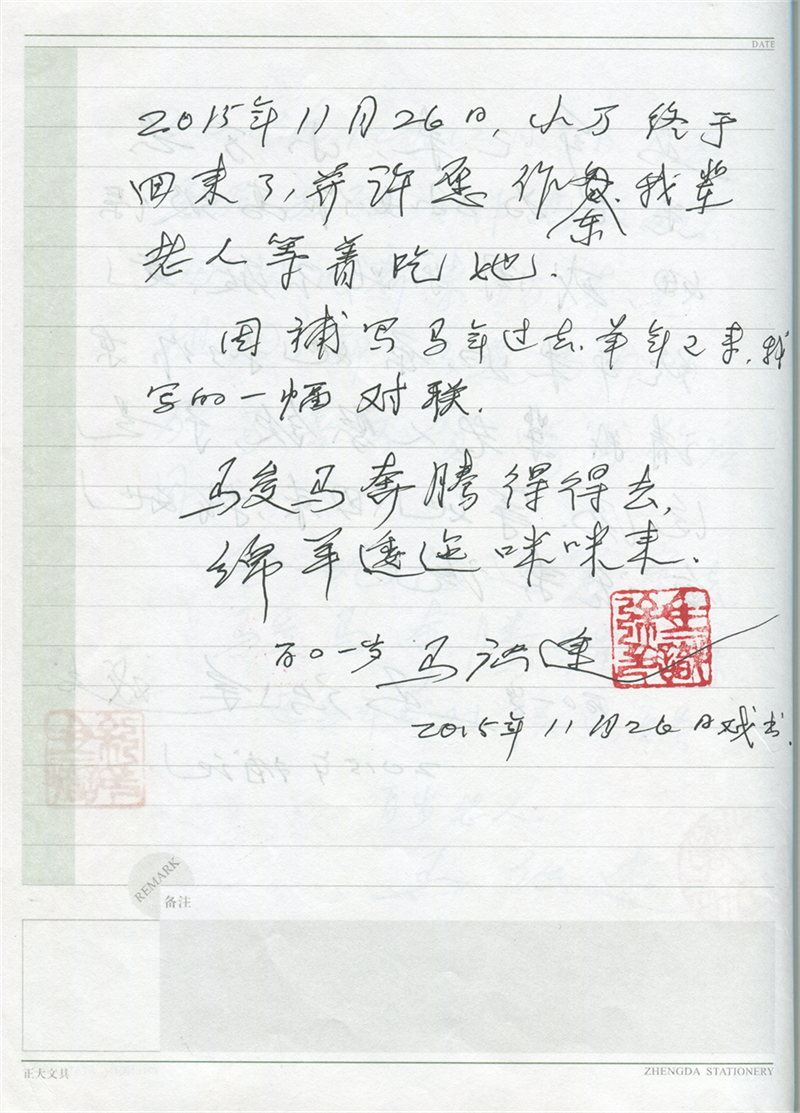 DATE
2015年11月26日,小万终于
回来了,并许愿作东.我辈
老人等着吃她.
因补写马年过去.羊年已来,我
写的一幅对联.
骏马奔腾得得去,
绵羊逶迤咪咪来.
百〇一岁 马识途
2015年11月26日戏书.
REMARK
备注
正大文具
ZHENGDA STATIONERY